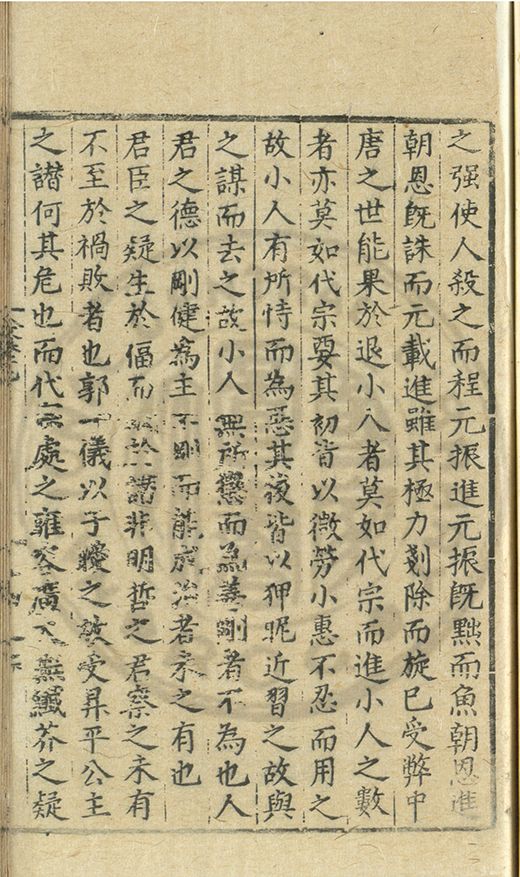 之强使人殺之而程元振進元振旣黜而魚朝恩進
朝恩旣誅而元載進雖其極力剗除而旋已受弊中
唐之世能果於退小人者莫如代宗而進小人之數
者亦莫如代宗要其初皆以微勞小惠不忍而用之
故小人有所恃而為惡其後皆以狎昵近習之故與
之謀而去之故小人無所懲而為善剛者不為也人
君之德以剛健為主不剛而能成治者未之有也
君臣之疑生於偪而於譛非明哲之君察之未有
不至於禍敗者也郭儀以子曖之故受昇平公主
之譛何其危也而代宗處之雍容廣無纖芥之疑